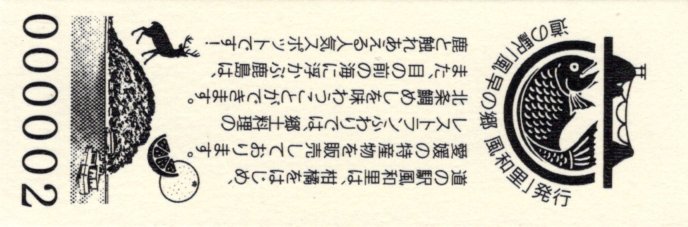 道の駅「風早の郷 風和里」発行
道の駅風和里は、柑橘をはじめ、
愛媛の特産物を販売しております。
レストランふわりでは、郷土料理の
北条鯛めしを味わうことができます。
また、目の前の海に浮かぶ鹿島は、
鹿と触れあえる人気スポットです！
000002